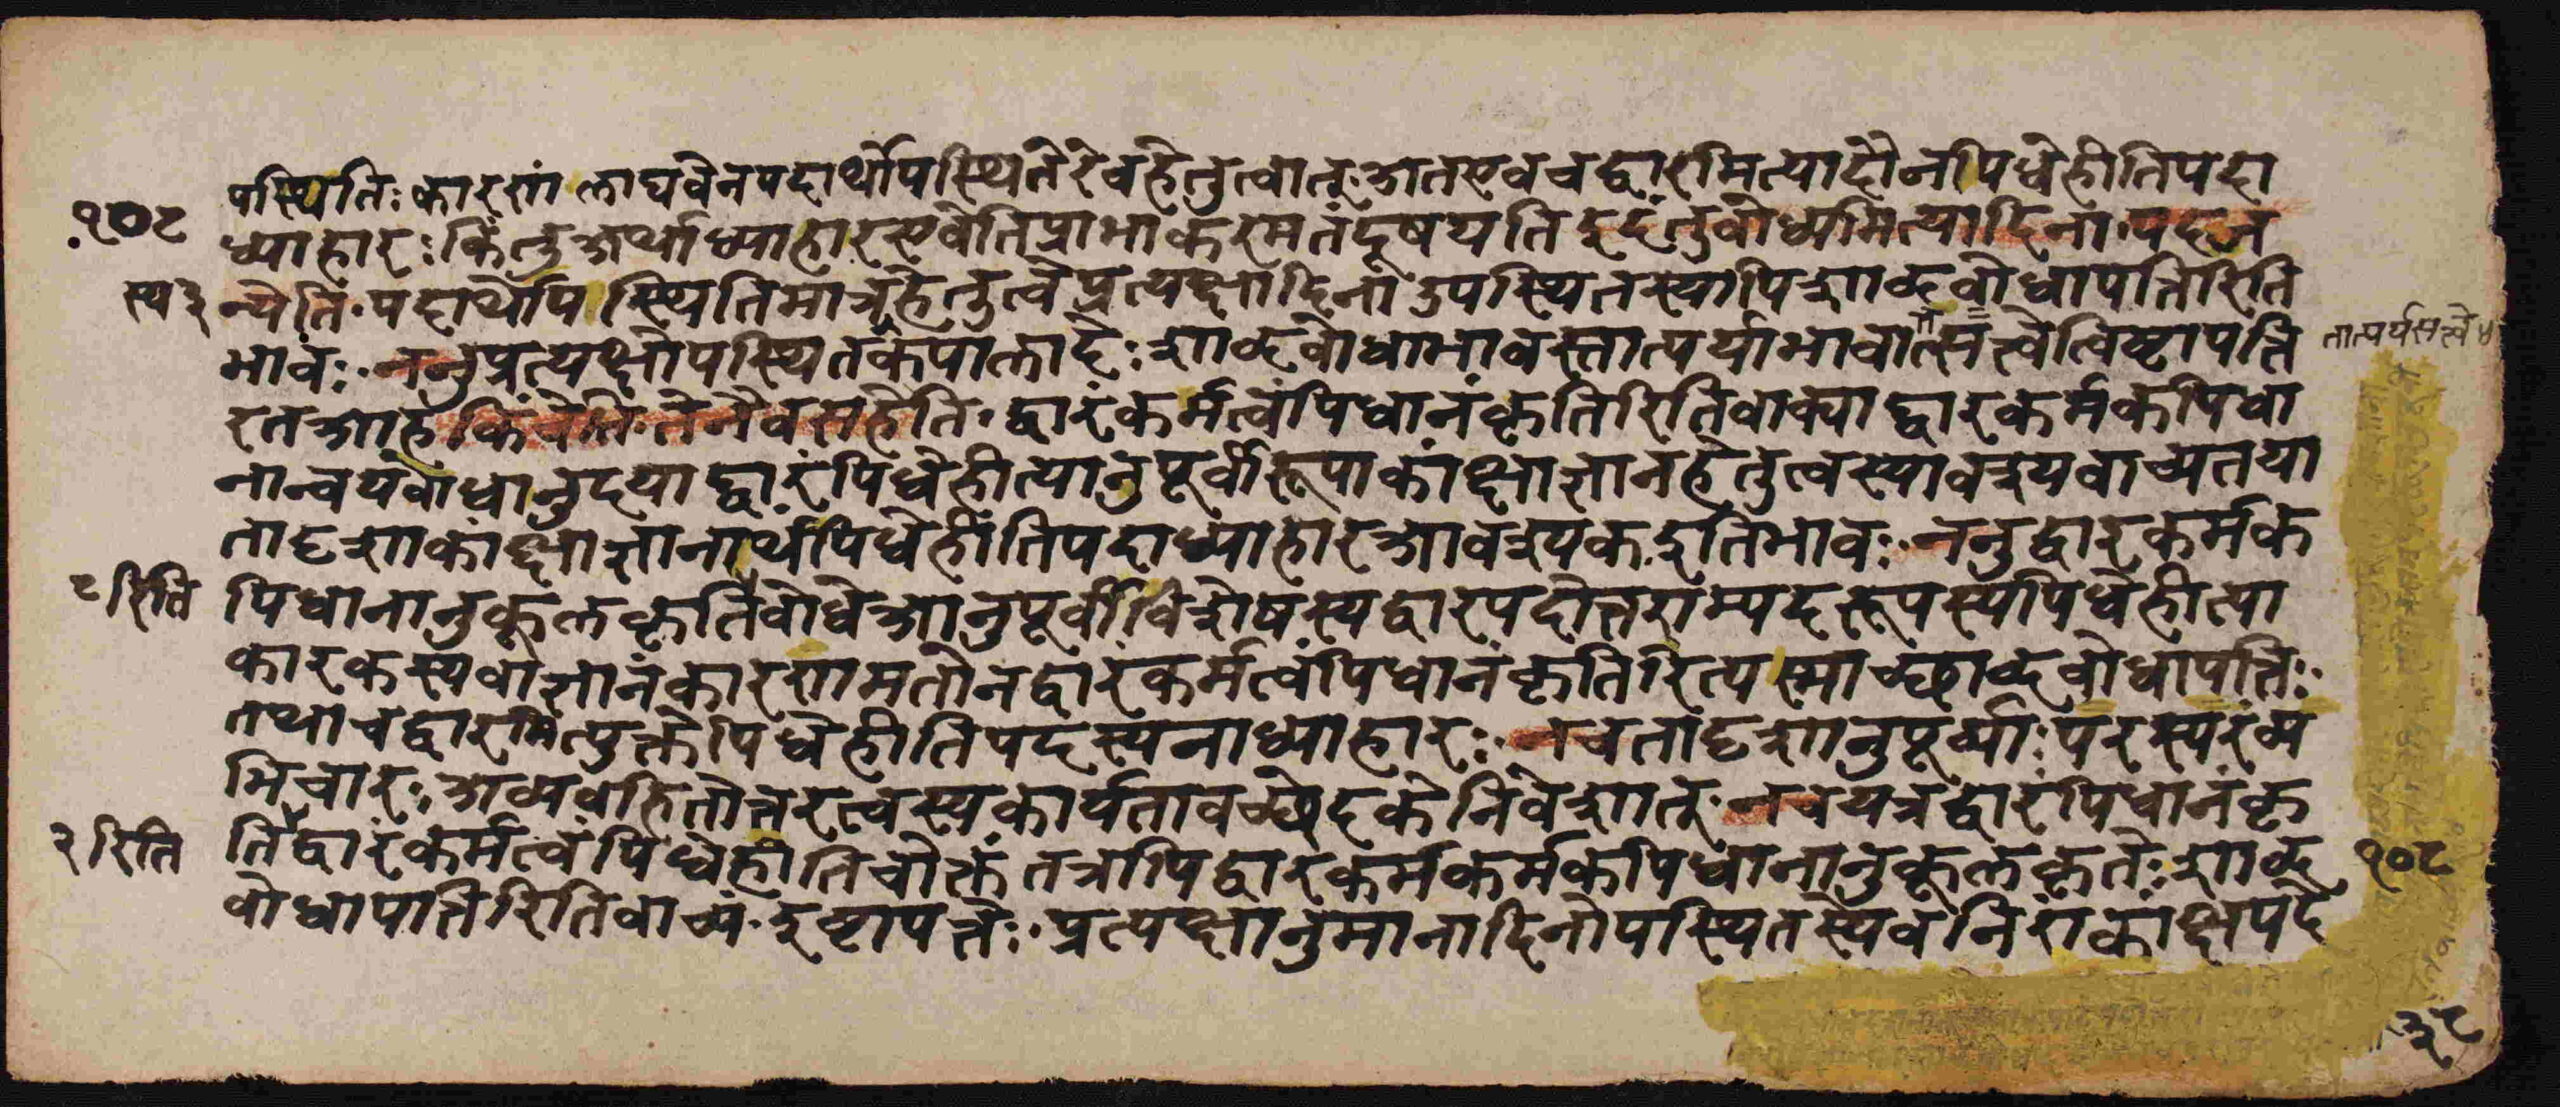 पस्थितिः कारणं लाघवेन पदार्थोपस्थितेरेव हेतुत्वात् अत एव च द्वारमित्यादौ न पिधेहीति पदा
१०८ ध्याहारः किंतु अर्थाध्याहार एवेति प्राभाकरमतं दूषयति इदं तु बोध्यमित्यादिना पदज
स्य ३ न्येति पदार्थोपस्थितिमात्रहेतुत्वे प्रत्यक्षादिना उपस्थितस्यापि शाब्दबोधापत्तिरिति
भावः ननु प्रत्यक्षोपस्थितकपालादेः शाब्दबोधाभावस्तात्पर्याभावात्सत्त्वे त्विष्टापत्ति तात्पर्यसत्त्वे ४
रत आह किंचेति तेनैव सहेति द्वारं कर्मत्वं पिधानं कृतिरिति वाक्याद्द्वारकर्मकपिधा
नान्वयबोधानुदयाद्द्वारं पिधेहीत्यानुपूर्वीरूपाकांक्षाज्ञानहेतुत्वस्यावश्यवाच्यतया
तादृशाकांक्षाज्ञानार्थं पिधेहीति पदाध्याहार आवश्यक इति भावः ननु द्वारकर्मक
८ रिति पिधानानुकूलकृतिबोधे आनुपूर्वीविशेषस्य द्वारपदोत्तराम्पदरूपस्य पिधेहीत्या
कारकस्य वा ज्ञानं कारणमतो न द्वारं कर्मत्वं पिधानं कृतिरित्यस्माच्छाब्दबोधापत्तिः
तथा च द्वारमित्युक्ते पिधेहीति पदस्य नाध्याहारः न च तादृशानुपूर्व्याः परस्परं व्य
भिचारः अव्यवहितोत्तरत्वस्य कार्यतावच्छेदके निवेशात् न च यत्र द्वारं पिधानं कृ
२ रिति ति द्वारं कर्मत्वं पिधेहीति चोक्तं तत्रापि द्वारकर्मकर्मकपिधानानुकूलकृतेः शाब्द १०८
बोधापत्तिरिति वाच्यं इष्टापत्तेः प्रत्यक्षानुमानादिनोपस्थितस्येव निराकांक्षपदे
३८